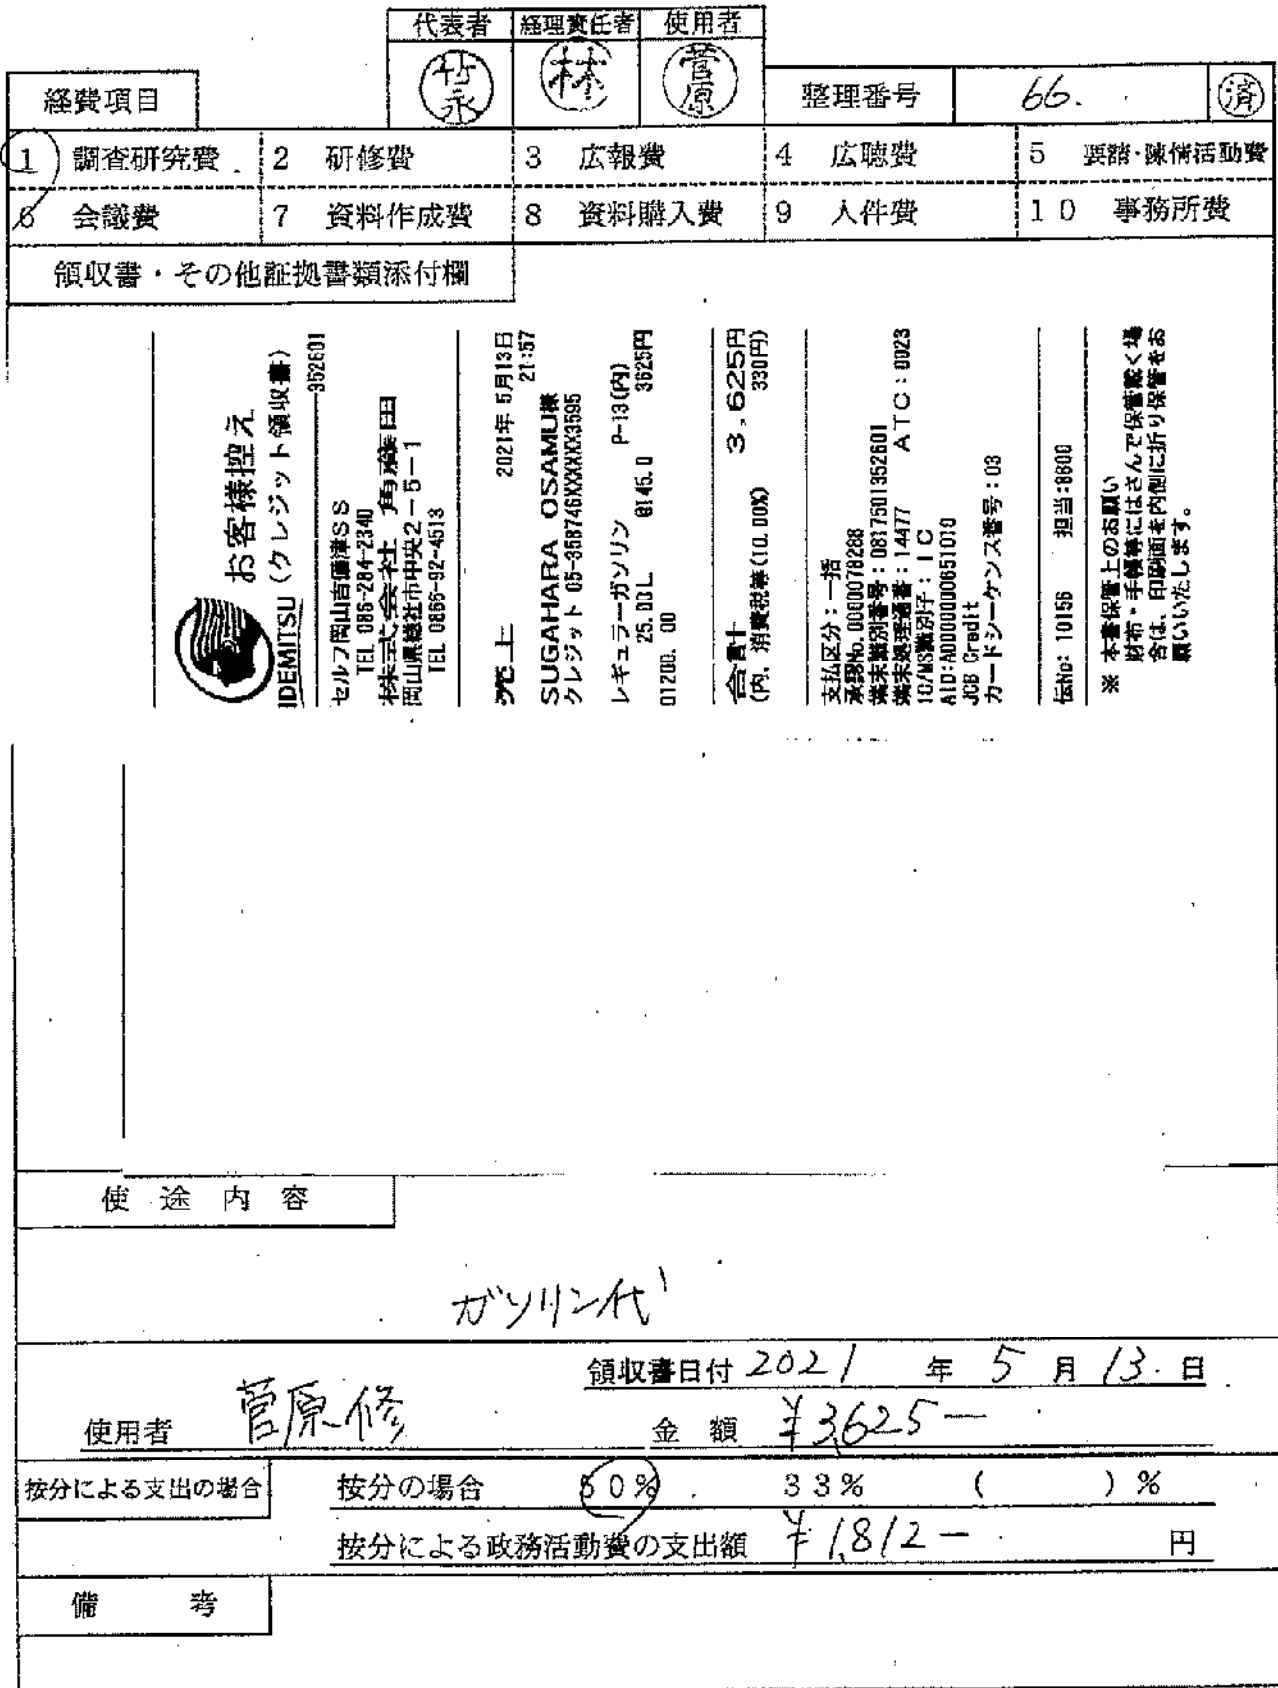 代表者 経理責任者 使用者
竹永 林 菅原
経費項目 整理番号 66. 済
1 調査研究費 2 研修費 3 広報費 4 広聴費 5 要請・陳情活動費
6 会議費 7 資料作成費 8 資料購入費 9 人件費 10 事務所費
領収書・その他証拠書類添付欄
お客様控え
IDEMITSU (クレジット領収書)
352601
セルフ岡山吉備津SS
TEL 086-284-2340
株式会社 角藤田
岡山県総社市中央2-5-1
TEL 0866-92-4513
売上 2021年 5月13日
21:57
SUGAHARA OSAMU様
クレジット 05-358746XXXXXXX3595
レギュラーガソリン P-13(内)
25.00L @145.0 3625円
01200. 00
合計 3,625円
(内、消費税等(10.00%) 330円)
支払区分:一括
承認No.0000078288
端末識別番号:0817501352601
端末処理通番:14477 ATC:0023
IC/MS識別子:IC
AID:A0000000651010
JCB Credit
カードシーケンス番号:03
伝No: 10156 担当:8800
※ 本書保管上のお願い
財布・手帳等にはさんで保管戴く場
合は、印刷面を内側に折り保管をお
願いいたします。
使途内容
ガソリン代
領収書日付 2021 年 5 月 13 日
使用者 菅原修 金額 ¥3,625-
按分による支出の場合 按分の場合 50% 33% ( )%
按分による政務活動費の支出額 ¥1,812- 円
備考